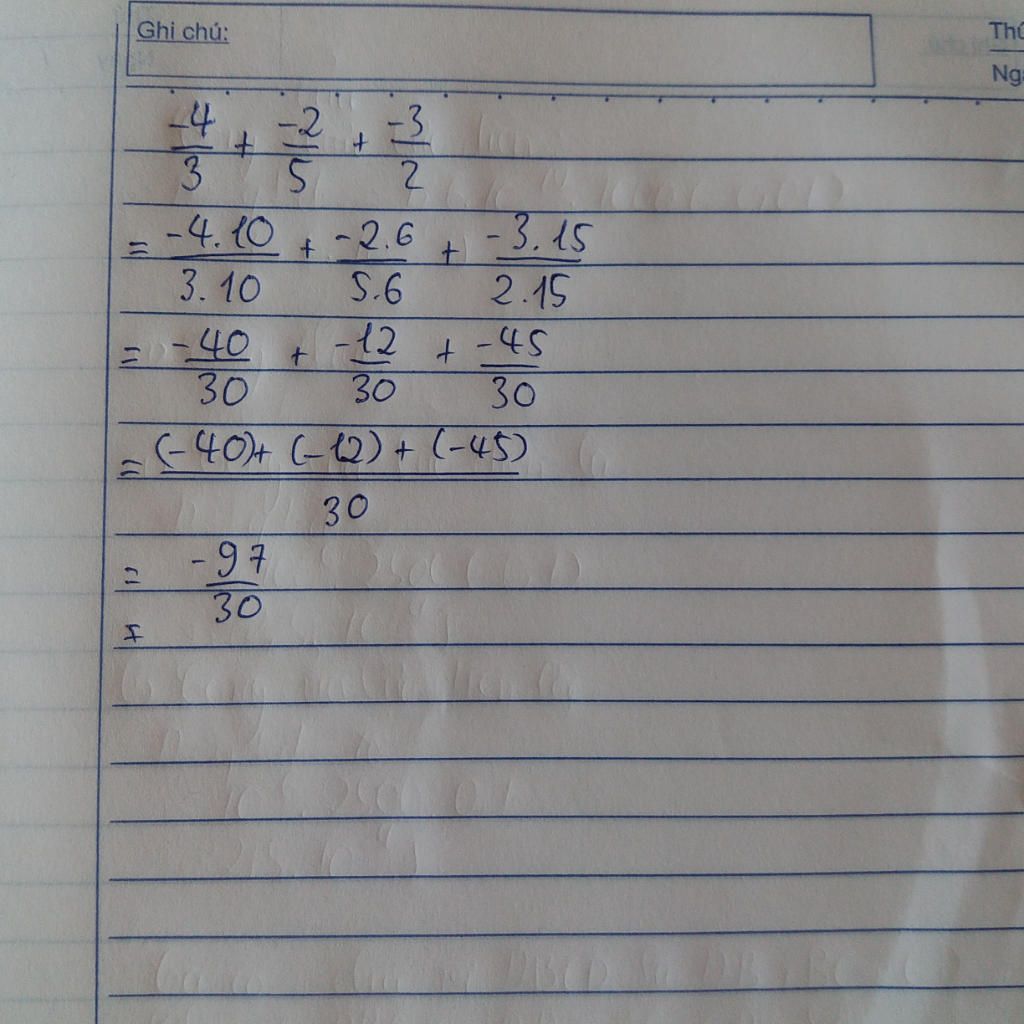 Ghi chú:
Thứ
Ngà
-4/3 + -2/5 + -3/2
= -4.10/3.10 + -2.6/5.6 + -3.15/2.15
= -40/30 + -12/30 + -45/30
= (-40)+ (-12) + (-45)/30
= -97/30